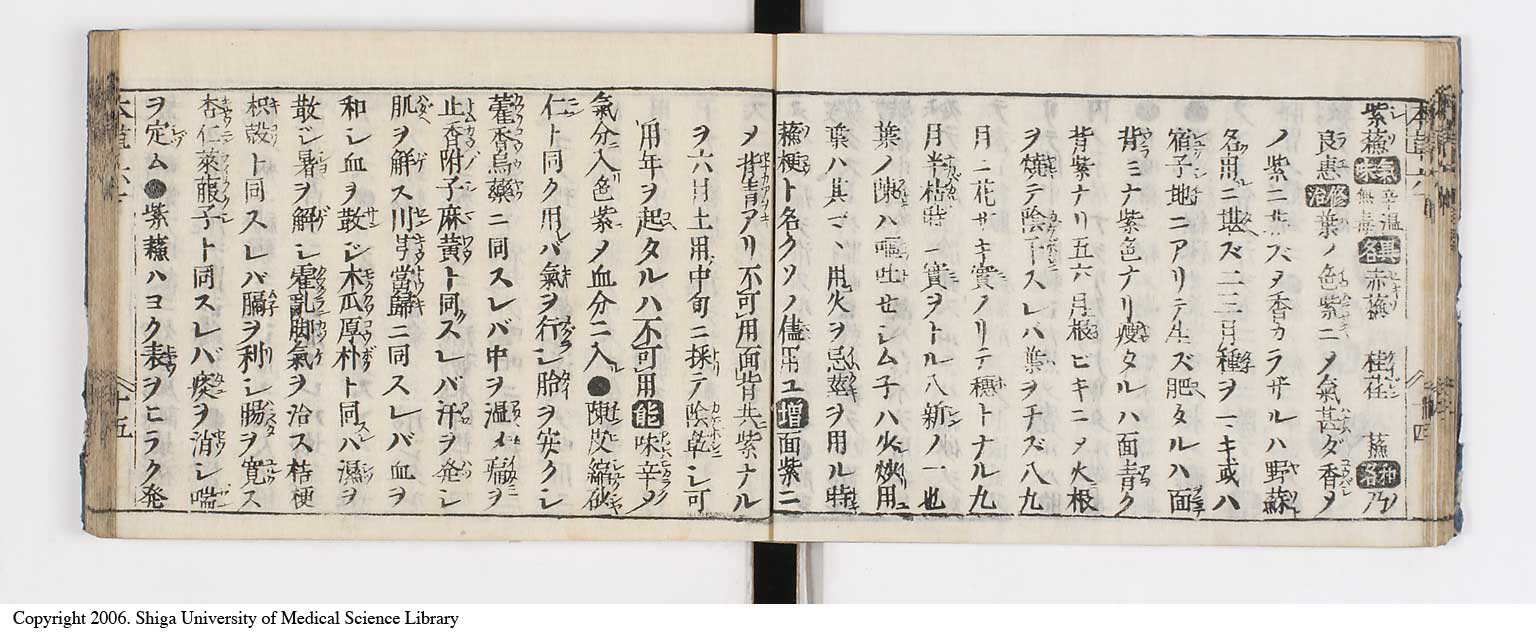 紫蘇 氣味 辛温無毒 異名 赤蘇 桂荏 蘇 和名 乃
良恵 修治 葉ノ色紫ニメ氣甚ダ香メ
ノ紫ニ非ズメ香カラザルハ野蘇
名用ニ堪ズ二三月種ヲマキ或ハ
宿子地ニアリテ生ズ肥タルハ面
背ミナ紫色ナリ瘦タルハ面青ク
背紫ナリ五六月根ビキニメ火根
ヲ焼テ陰干スレバ葉ヲチズ八九
月ニ花サキ實ノリテ穂トナル九
月半枯時ニ實ヲトル八新ノ一也
葉ノ陳ハ嘔吐セシム子ハ火炒用
葉ハ其マヽ用火ヲ忌莖ヲ用ル時
蘇梗ト名クソノ儘用ユ 増 面紫ニ
メ背青アリ不可用面背共紫ナル
ヲ六月土用中旬ニ採テ陰乾シ可
用年ヲ起タルハ不可用 能 味辛メ
氣分ニ入色紫メ血分ニ入●陳皮縮砂
仁ト同ク用バ氣ヲ行シ胎ヲ安クシ
藿香烏藥ニ同スレバ中ヲ温メ痛ヲ
止香附子麻黄ト同スレバ汗ヲ発シ
肌ヲ解ス川芎當歸ニ同スレバ血ヲ
和シ血ヲ散シ木瓜厚朴ト同バ濕ヲ
散シ暑ヲ解シ霍乱脚氣ヲ治ス桔梗
枳殻ト同スレバ膈ヲ利シ腸ヲ寛ス
杏仁萊菔子ト同スレバ痰ヲ消シ喘
ヲ定ム●紫蘇ハヨク表ヲヒラク発
十五
Copyright 2006. Shiga University of Medical Science Library